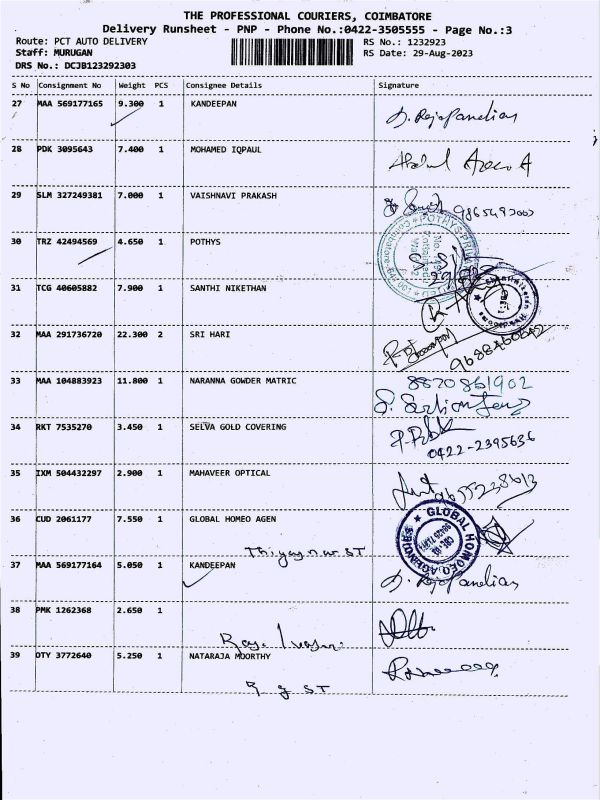 THE PROFESSIONAL COURIERS, COIMBATORE
Delivery Runsheet - PNP - Phone No.:0422-3505555 - Page No.:3
Route: PCT AUTO DELIVERY
RS No.: 1232923
Staff: MURUGAN
RS Date: 29-Aug-2023
DRS No.: DCJB123292303
S No Consignment No Weight PCS Consignee Details Signature
27 MAA 569177165 9.300 1 KANDEEPAN
28 PDK 3095643 7.400 1 MOHAMED IQPAUL
29 SLM 327249381 7.000 1 VAISHNAVI PRAKASH
30 TRZ 42494569 4.650 1 POTHYS
31 TCG 40605882 7.900 1 SANTHI NIKETHAN
32 MAA 291736720 22.300 2 SRI HARI
33 MAA 104883923 11.800 1 NARANNA GOWDER MATRIC 8870861902
34 RKT 7535270 3.450 1 SELVA GOLD COVERING
0422-2395636
35 IXM 504432297 2.900 1 MAHAVEER OPTICAL
36 CUD 2061177 7.550 1 GLOBAL HOMEO AGEN
GLOBAL HOMOEO AGENCIES
37 MAA 569177164 5.050 1 KANDEEPAN
38 PMK 1262368 2.650 1
39 OTY 3772640 5.250 1 NATARAJA MOORTHY